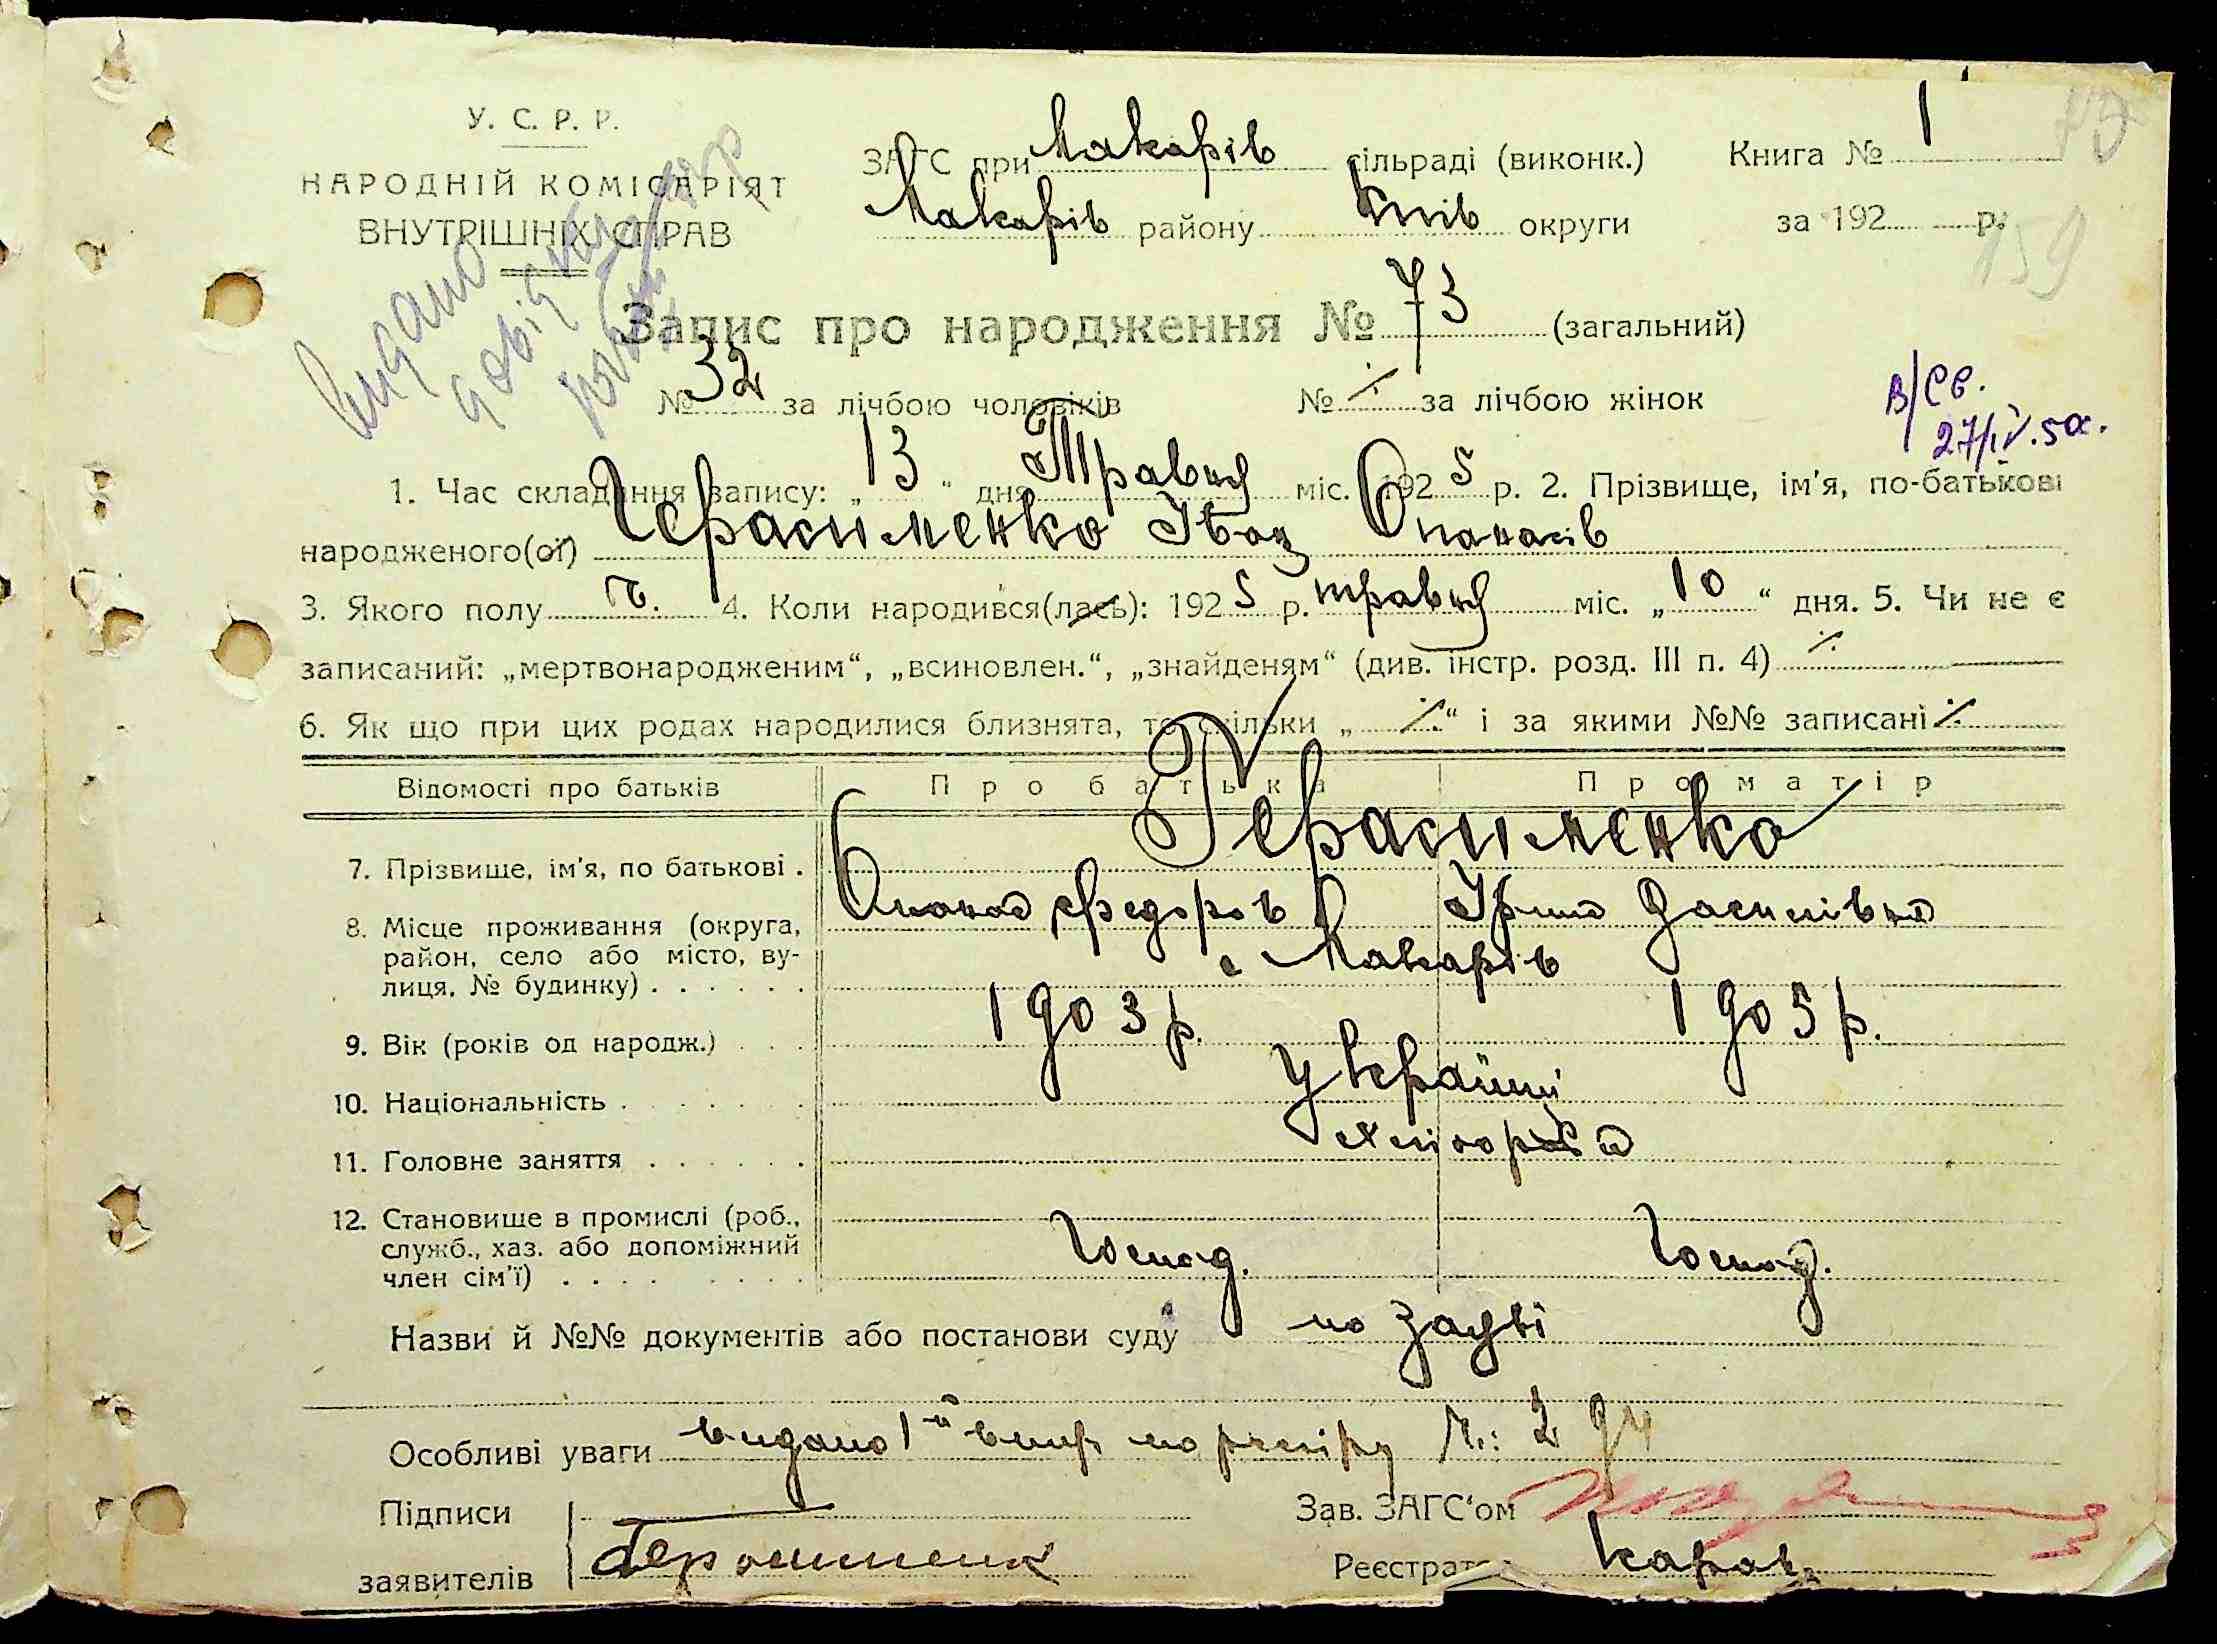 У. С. Р. Р.
НАРОДНІЙ КОМІСАРІЯТ
ВНУТРІШНІХ СПРАВ
ЗАГС при Макарів сільраді (виконк.) Книга № 1
Макарів району Київ округи за 192 р.
139
видано
Запис про народження № 73 (загальний)
№ 32 за лічбою чоловіків № ⁒ за лічбою жінок
в/св.
27/IV.50.
1. Час складання запису: „13“ дня Травня міс. 1925 р. 2. Прізвище, ім'я, по-батькові
народженого(ої) Герасименко Іван Опанасів
3. Якого полу ч. 4. Коли народився(лась): 1925 р. травня міс. „10“ дня. 5. Чи не є
записаний: „мертвонародженим“, „всиновлен.“, „знайденям“ (див. інстр. розд. III п. 4) ⁒
6. Як що при цих родах народилися близнята, то скільки „⁒“ і за якими №№ записані ⁒
Відомості про батьків Про батька Про матір
Герасименко
7. Прізвище, ім'я, по батькові .
Опанас Федоров Ірина
8. Місце проживання (округа,
район, село або місто, ву-
лиця, № будинку) . . . . . .
с Макарів
9. Вік (років од народж.) . . . 1903 р. 1905 р.
10. Національність . . . . . . . Україні
11. Головне заняття . . . . . . хлібороб
12. Становище в промислі (роб.,
служб., хаз. або допоміжний
член сім'ї) . . . . . . . . .
Господ. Господ.
Назви й №№ документів або постанови суду по заяві
Особливі уваги видано 1й
Підписи
заявителів
Зав. ЗАГС'ом
Реєстрат